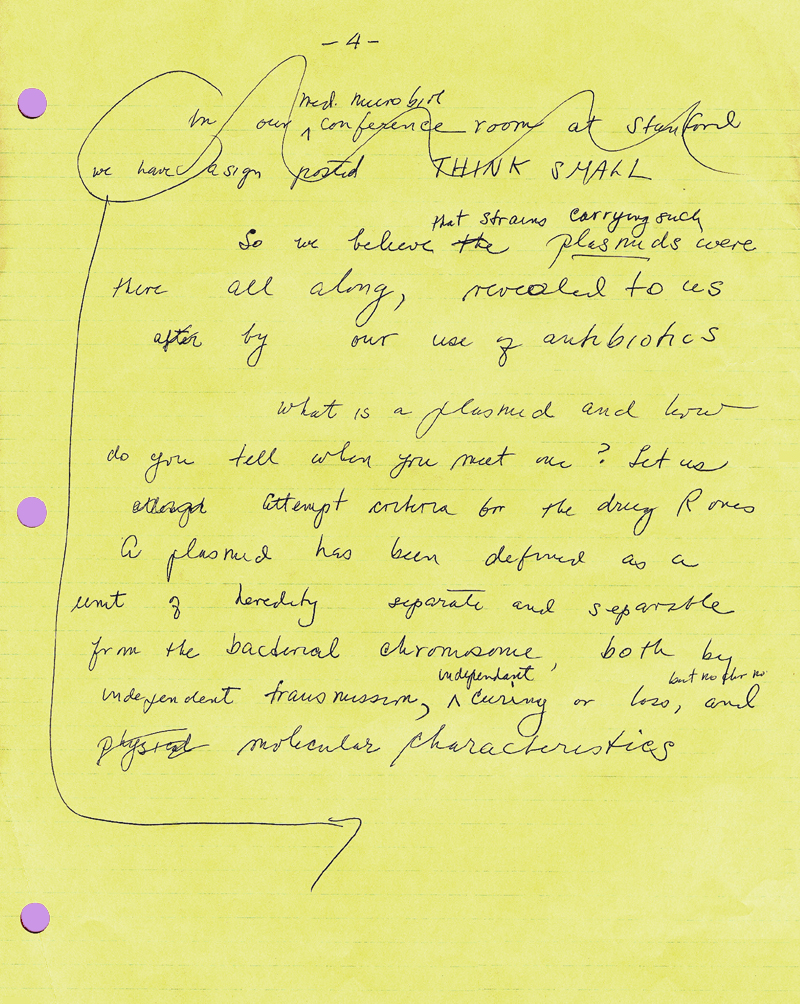 - 4 -
med. microbiol
In our conference room at Stanford
we have a sign posted THINK SMALL
that strains carrying such
So we believe the plasmids were
there all along, revealed to us
after by our use of antibiotics
What is a plasmid and how
do you tell when you meet one? Let us
attempt criteria for the drug R ones
A plasmid has been defined as a
unit of heredity separate and separable
from the bacterial chromosome, both by
independent but no
independent transmission, curing or loss, and
physical molecular characteristics